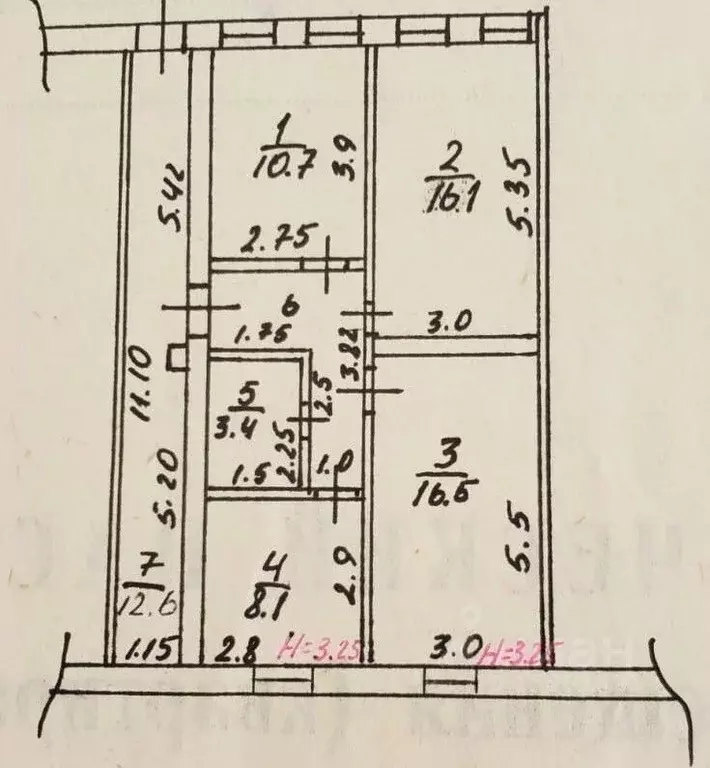 1
10.7
3.9
2
16.1
5.35
5.42
2.75
6
3.0
1.75
3.82
11.10
2.5
5
3.4
2.25
1.5
1.0
3
16.5
5.20
5.5
7
12.6
4
8.1
2.9
1.15
2.8
H=3.25
3.0
H=3.25